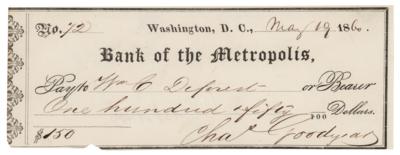 No. 72 Washington, D. C., May 19 1860.
Bank of the Metropolis,
Pay to Wm C Deforest or Bearer
One hundred & fifty /100 Dollars.
$150 Chas Goodyear